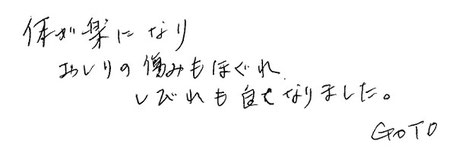 体が楽になり
おしりの傷みもほぐれ、
しびれも自せなりました。
GOTO